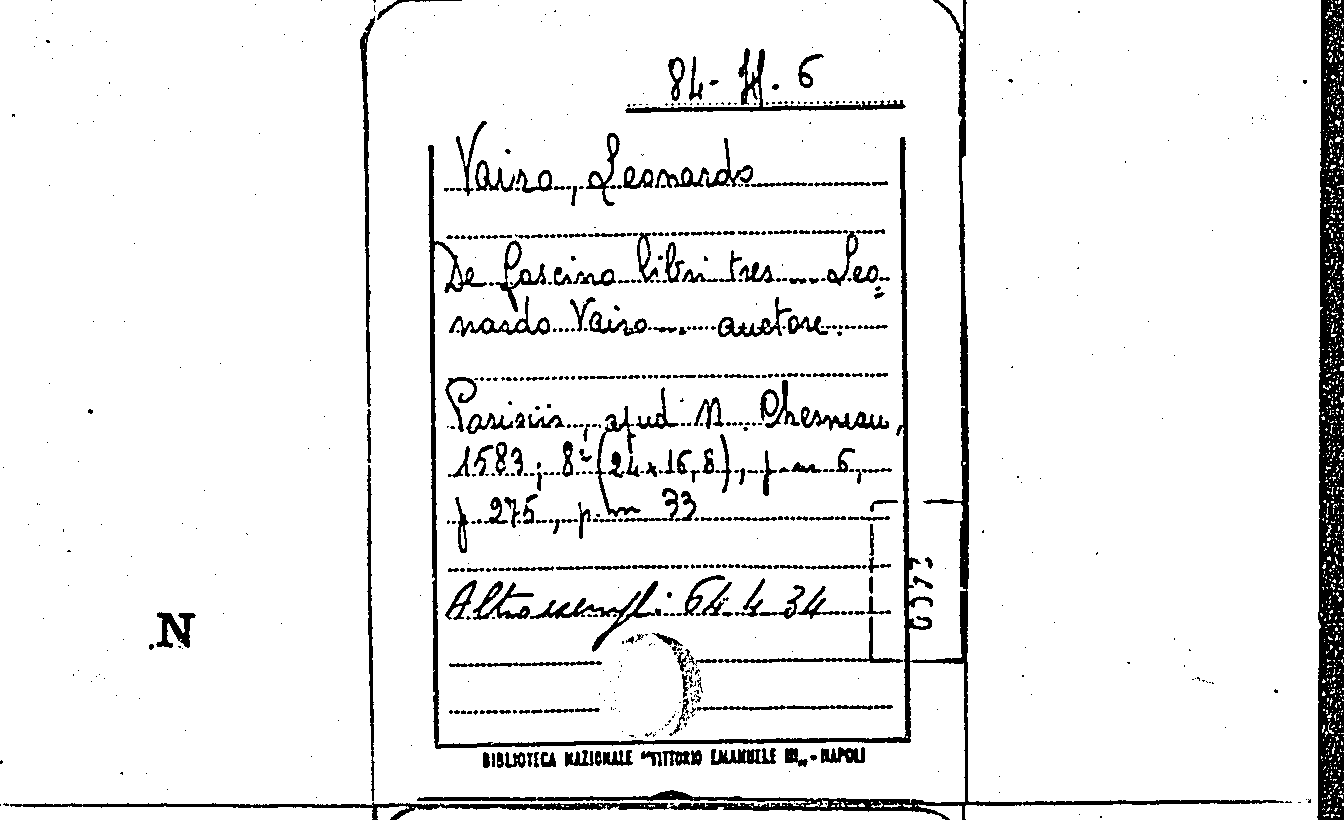 84- H. 6
Vairo, Leonardo
De fascino libri tres ... Leo=
nardo Vairo ... auctore.
Parisiis, apud N. Chesneau,
1583; 8º (24x16,8), p. nn 6,
p 275, p. nn 33
Altro esempl: 64. 4. 34
N
BIBLIOTECA NAZIONALE "VITTORIO EMANUELE III" - NAPOLI